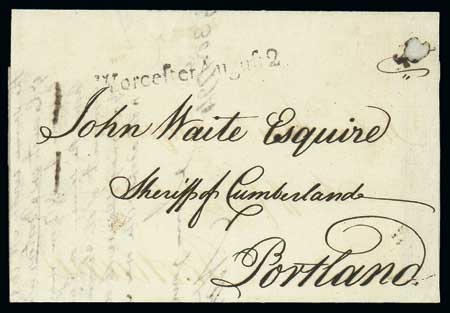 Worcester August 2
John Waite Esquire
Sheriff of Cumberland
Portland.